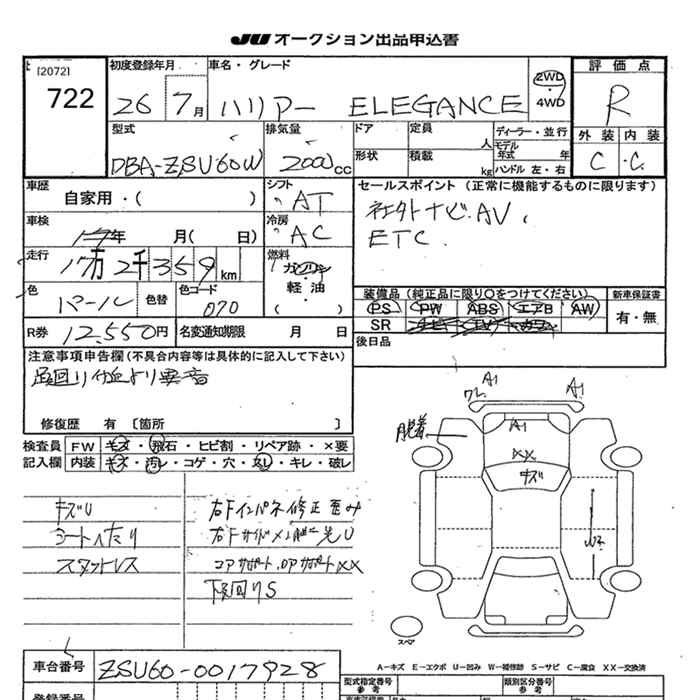 JU オークション出品申込書
[2072]
722
初度登録年月
26 7月
車名・グレード
ハリアー ELEGANCE
2WD
・
4WD
評価点
R
外装 内装
C ・C.
型式
DBA-ZSU60W
排気量
2000cc
ドア
定員
人
形状
積載
kg
ディーラー・並行
モデル年式 年
ハンドル 左・右
車歴
自家用・( )
シフト
AT
冷房
AC
車検
年 月( 日)
走行
万 2千 359km
燃料
ガソリン
・
軽油
( )
色
パール
色替
色コード
070
R券 12,550円
名変通知期限 月 日
セールスポイント (正常に機能するものに限ります)
社外ナビ.AV.
ETC.
装備品 (純正品に限り○をつけてください)
PS PW ABS エアB AW
SR ナビ TV カワ
新車保証書
有・無
後日品
注意事項申告欄(不具合内容等は具体的に記入して下さい)
足廻り付近より異音
修復歴 有 〔箇所 〕
検査員記入欄
FW キズ・飛石・ヒビ割・リペア跡・×要
内装 キズ・汚レ・コゲ・穴・スレ・キレ・破レ
キズU
シートへたり
スタットレス
右Fインパネ修正歪み
右Fサイドメンバー先U
コアサポート.ロアサポートXX
下廻りS
ワレ A1
A1
A1
脱着
XX
キズ
W2
スペア
A-キズ E-エクボ U-凹み W-補修跡 S-サビ C-腐食 XX-交換済
車台番号
ZSU60-0017928
登録番号
型式指定番号
参考
類別区分番号
参考